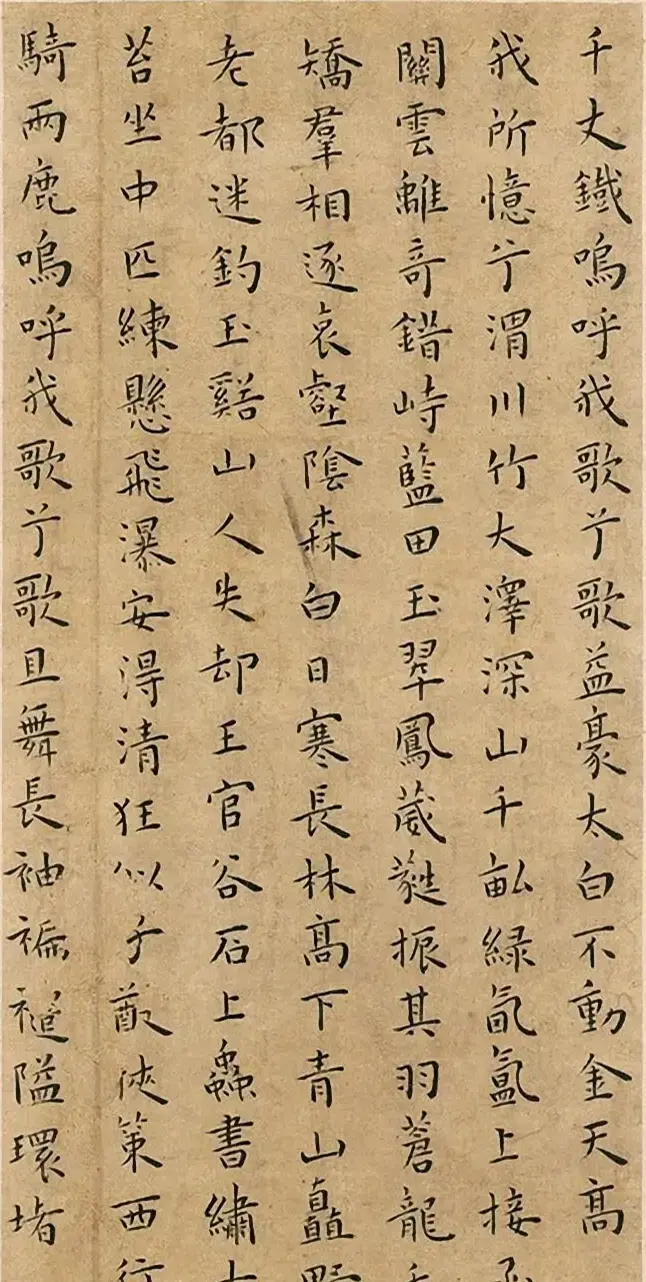 千丈鐵嗚呼我歌兮歌益豪太白不動金天高
我所憶兮渭川竹大澤深山千畝綠氤氳上接
關雲雖奇錯峙藍田玉翠鳳葳蕤振其羽蒼龍
矯羣相逐哀壑陰森白日寒長林高下青山矗野
老都迷釣玉谿山人失却王官谷石上蟲書繡
苔坐中匹練懸飛瀑安得清狂似子猷俠策西行
騎兩鹿嗚呼我歌兮歌且舞長袖褊褼隘環堵